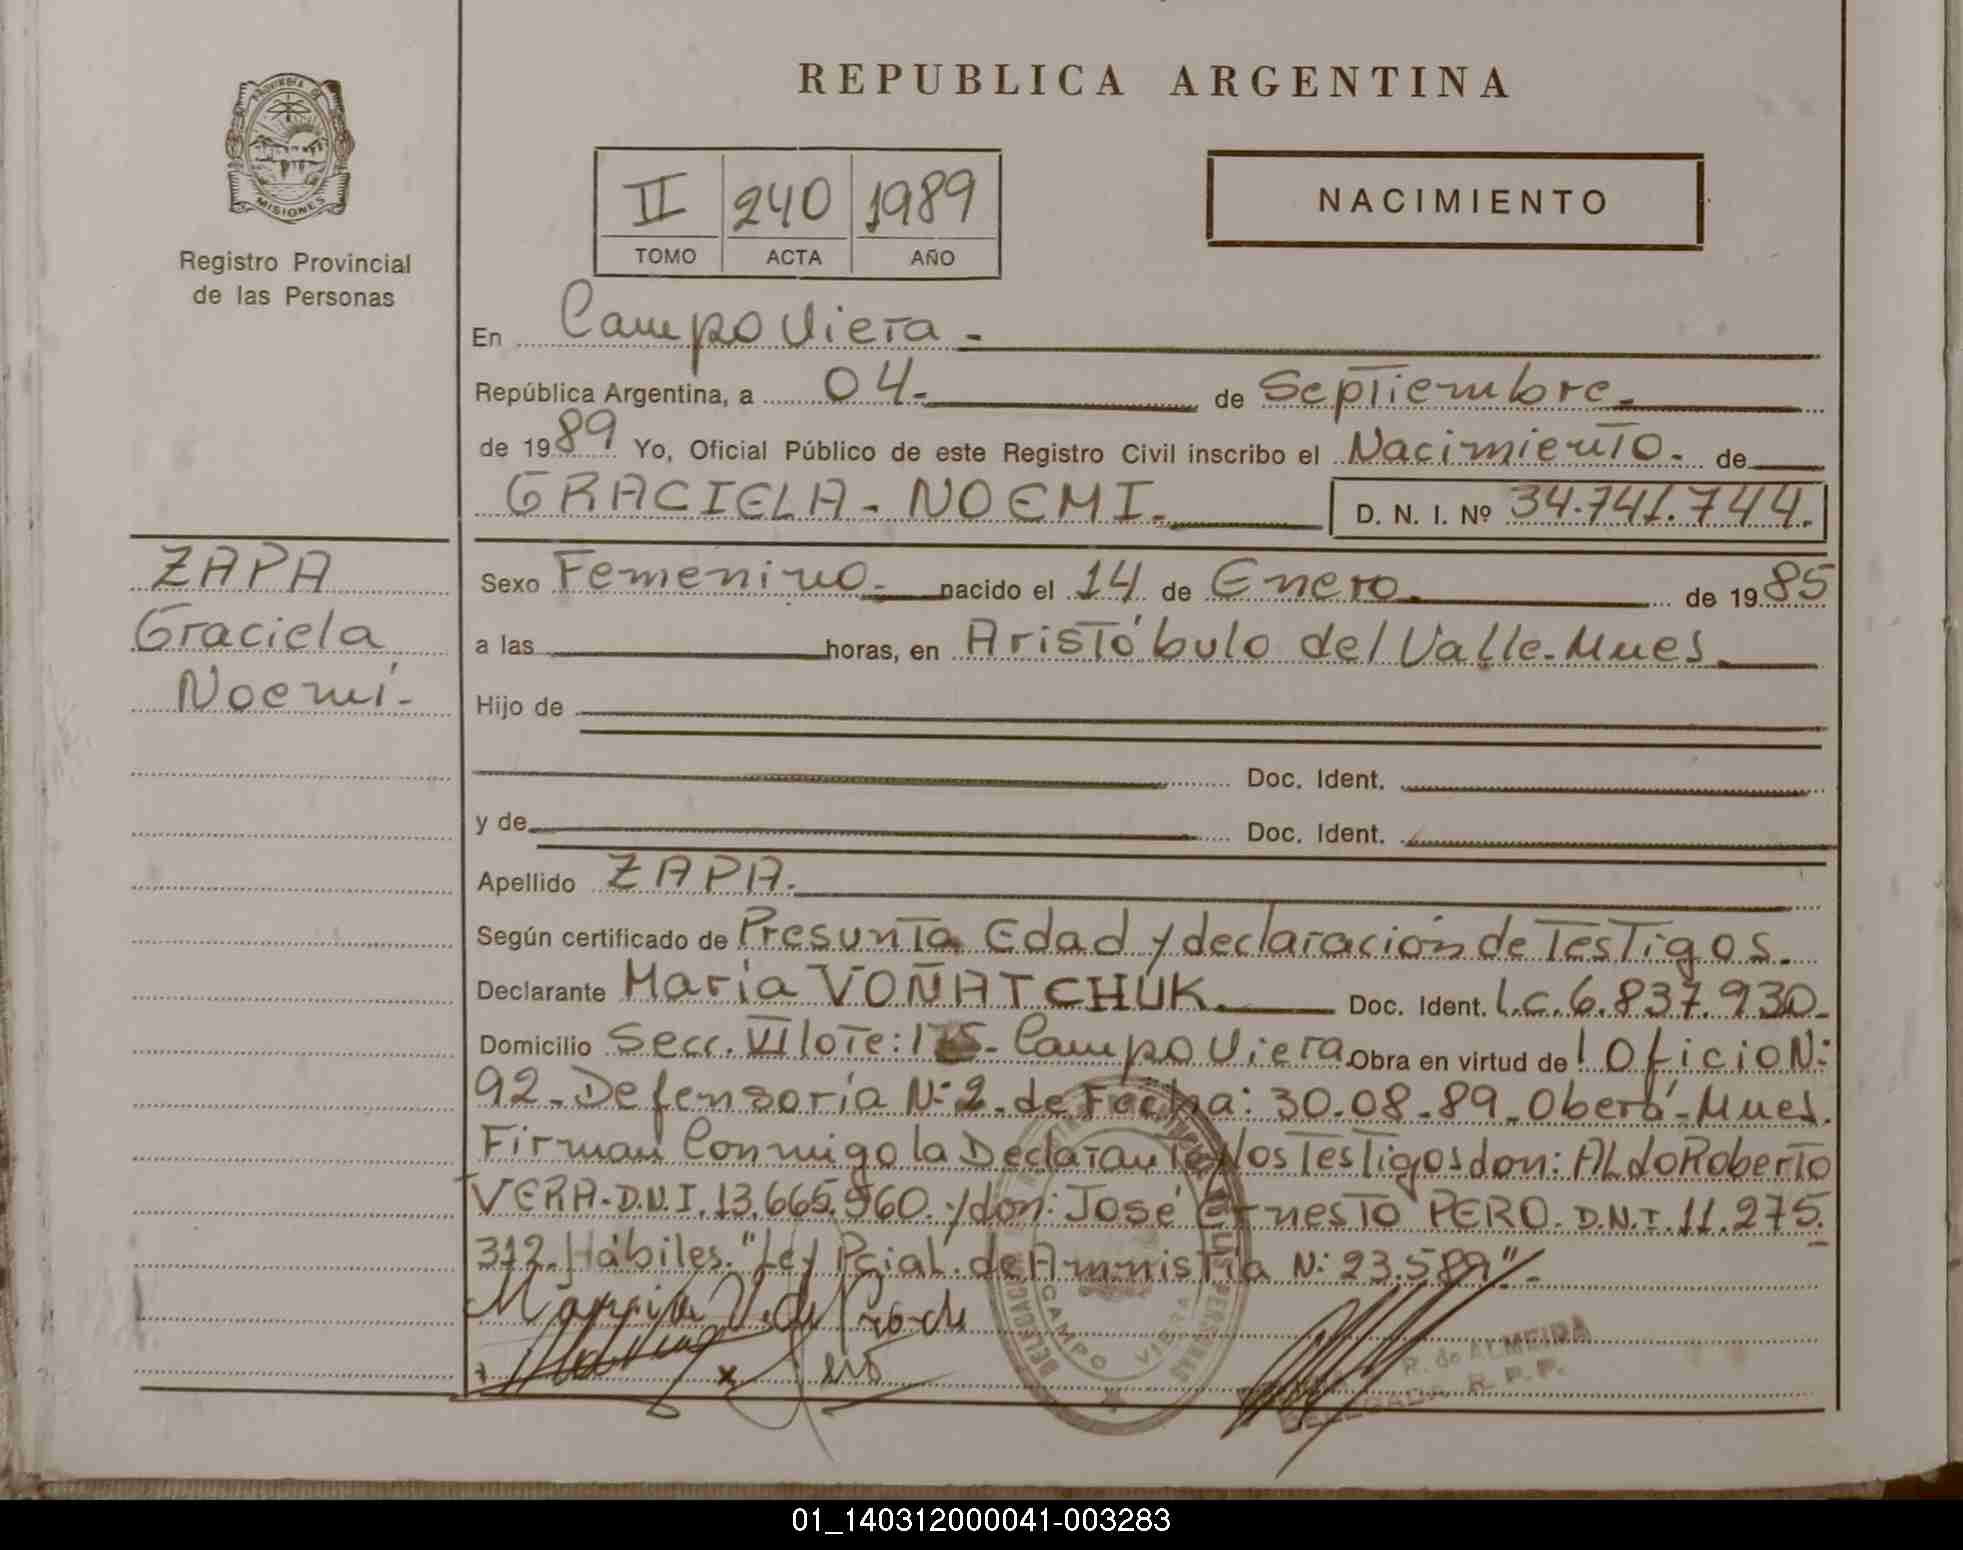 REPUBLICA ARGENTINA
PROVINCIA DE
MISIONES
Registro Provincial
de las Personas
II 240 1989
TOMO ACTA AÑO
NACIMIENTO
En Campo Viera -
República Argentina, a 04.- de Septiembre.
de 1989 Yo, Oficial Público de este Registro Civil inscribo el Nacimiento. de
GRACIELA - NOEMI. D. N. I. Nº 34.741.744.
ZAPA
Graciela
Noemí.-
Sexo Femenino.- nacido el 14 de Enero. de 1985
a las horas, en Aristóbulo del Valle-Mnes
Hijo de
Doc. Ident.
y de Doc. Ident.
Apellido ZAPA.
Según certificado de Presunta Edad y declaración de Testigos.
Declarante María VOÑATCHUK. Doc. Ident. L.C. 6.837.930.
Domicilio Secc. VII lote: Campo Viera. Obra en virtud del Oficio N:
92 - Defensoría N: 2. de Fecha: 30-08-89-Oberá-Mnes.
Firman Conmigo la Declarante y los Testigos don: ALdo Roberto
VERA - D.N.I. 13.665.960. y don: José Ernesto PERO. D.N.I. 11.275.
312. Hábiles. "Ley Pcial. de Amnistía N: 23.589".
CAMPO VIERA
R. de ALMEIDA
DELEGADA R. P. P.
01_140312000041-003283